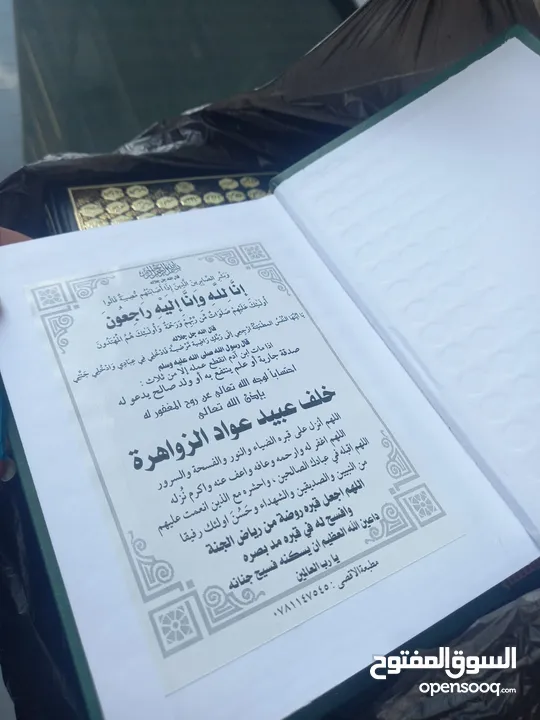 قال الله جل جلاله
وبشر الصابرين الذين إذا أصابتهم مصيبة قالوا
إنَّا لله وَإنَّا إليْه راجِعونَ
أولئك عليهم صلوات من ربهم ورحمة وأولئك هم المهتدون
قال الله جل جلاله
يا أيتها النفس المطمئنة ارجعي إلى ربك راضية مرضية فادخلي في عبادي وادخلي جنتي
قال رسول الله صلى الله عليه وسلم
إذا مات ابن آدم انقطع عمله إلا من ثلاث :
صدقة جارية أو علم ينتفع به أو ولد صالح يدعو له
احتساباً لوجه الله تعالى عن روح المغفور له
بإذن الله تعالى
خلف عبيد عواد الزواهرة
اللهم أنزل على قبره الضياء والنور والفسحة والسرور
اللهم اغفر له وارحمه وعافه واعف عنه واكرم نُزله
اللهم اقبله في عبادك الصالحين ، واحشره مع الذين انعمت عليهم
من النبيين والصديقين والشهداء وحَسُنَ اولئك رفيقا
اللهم اجعل قبره روضة من رياض الجنة
وافسح له في قبره مد بصره
داعين الله العظيم أن يسكنه فسيح جنانه
يا رب العالمين
مطبعة الاقصى : ٠٧٨١١٤٧٥٤٥
السوق المفتوح
opensooq.com